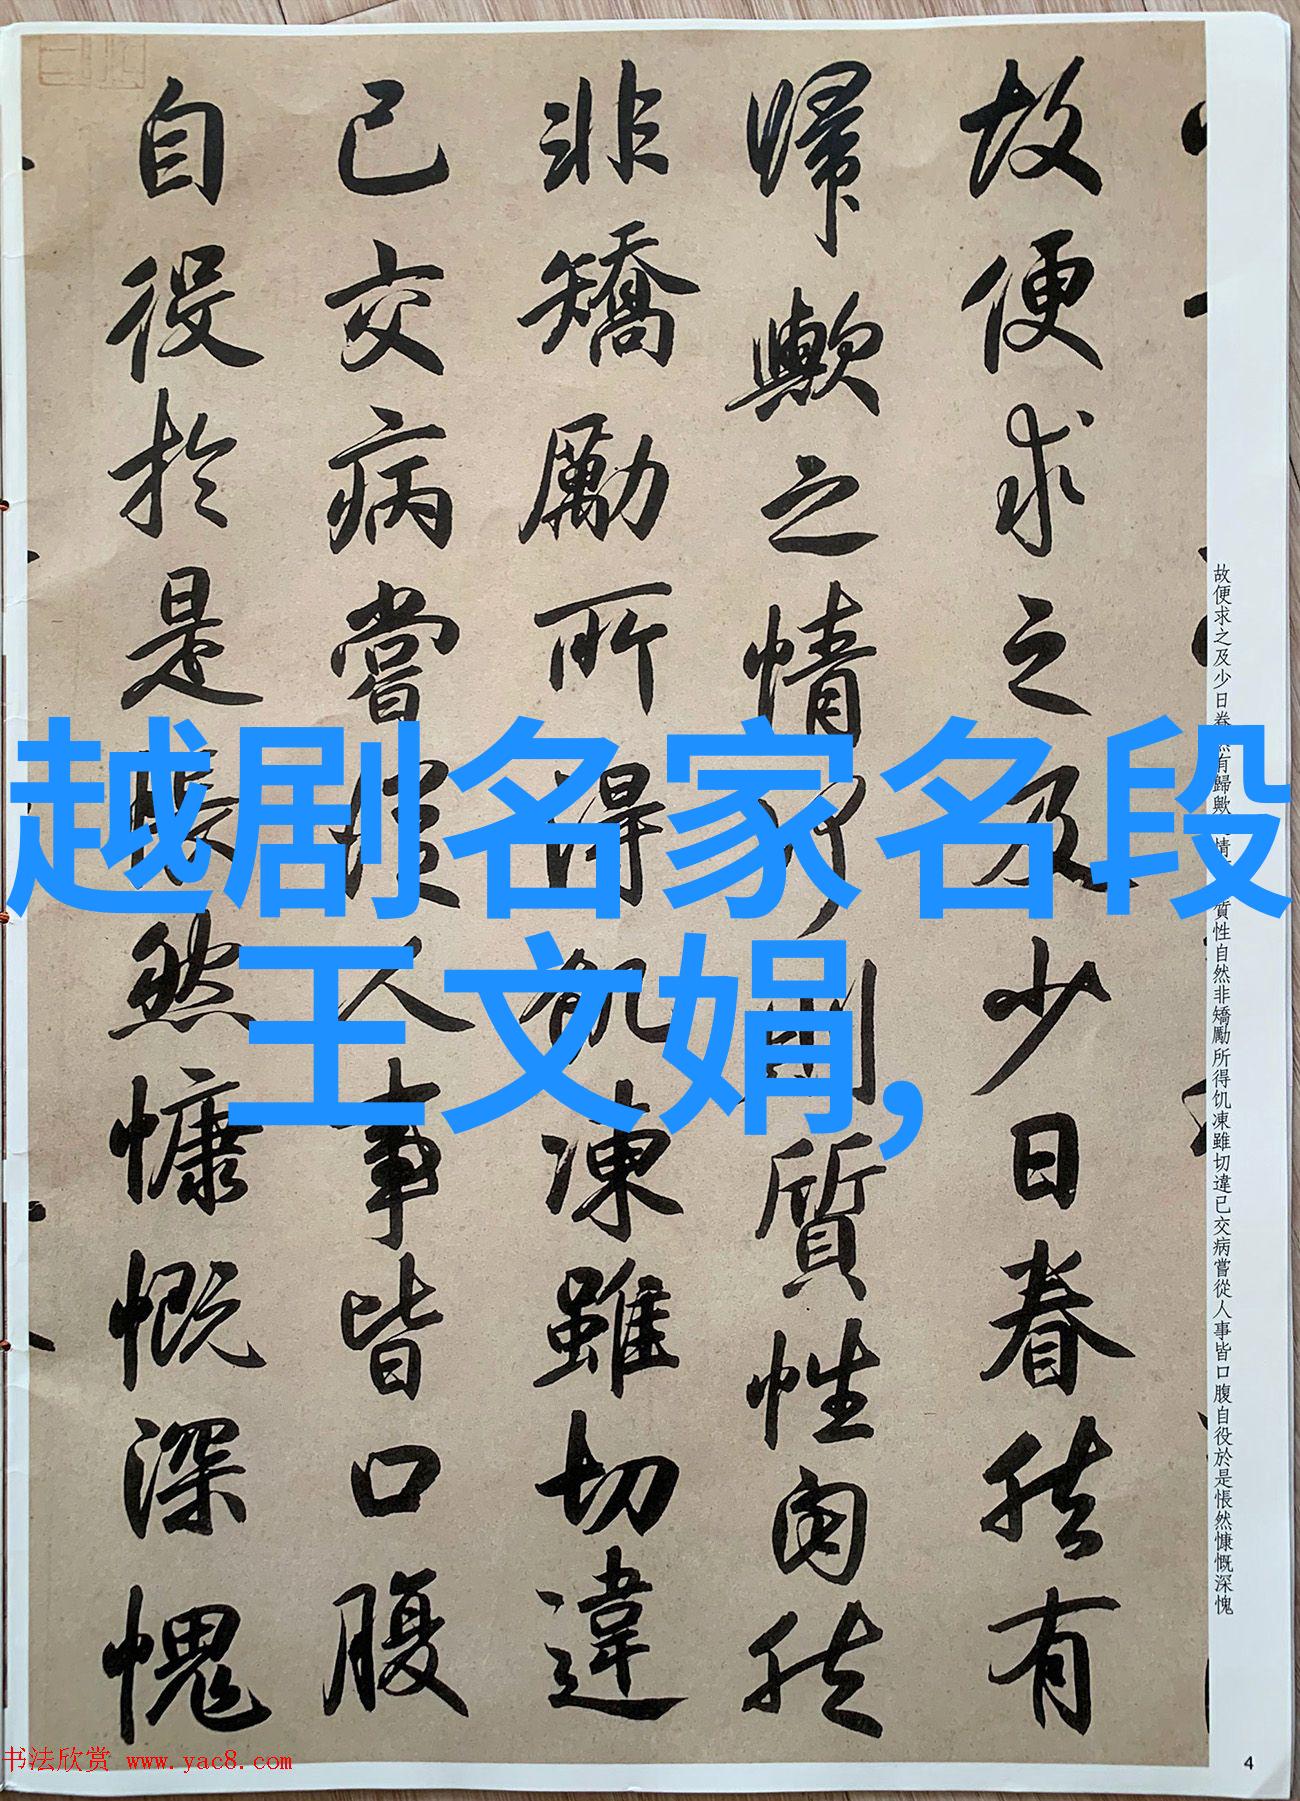 越剧名家名段
王文娟,
故便求之及少日眷然有
歸歟之情何則質性自然
非矯勵所得飢凍雖切違
已交病嘗從人事皆口腹
自役於是悵然慷慨深愧
故便求之及少日眷然有歸歟情質性自然非矯勵所得饥凍雖切違已交病嘗從人事皆口腹自役於是悵然慷慨深愧
书法欣赏 www.yac8.com
4